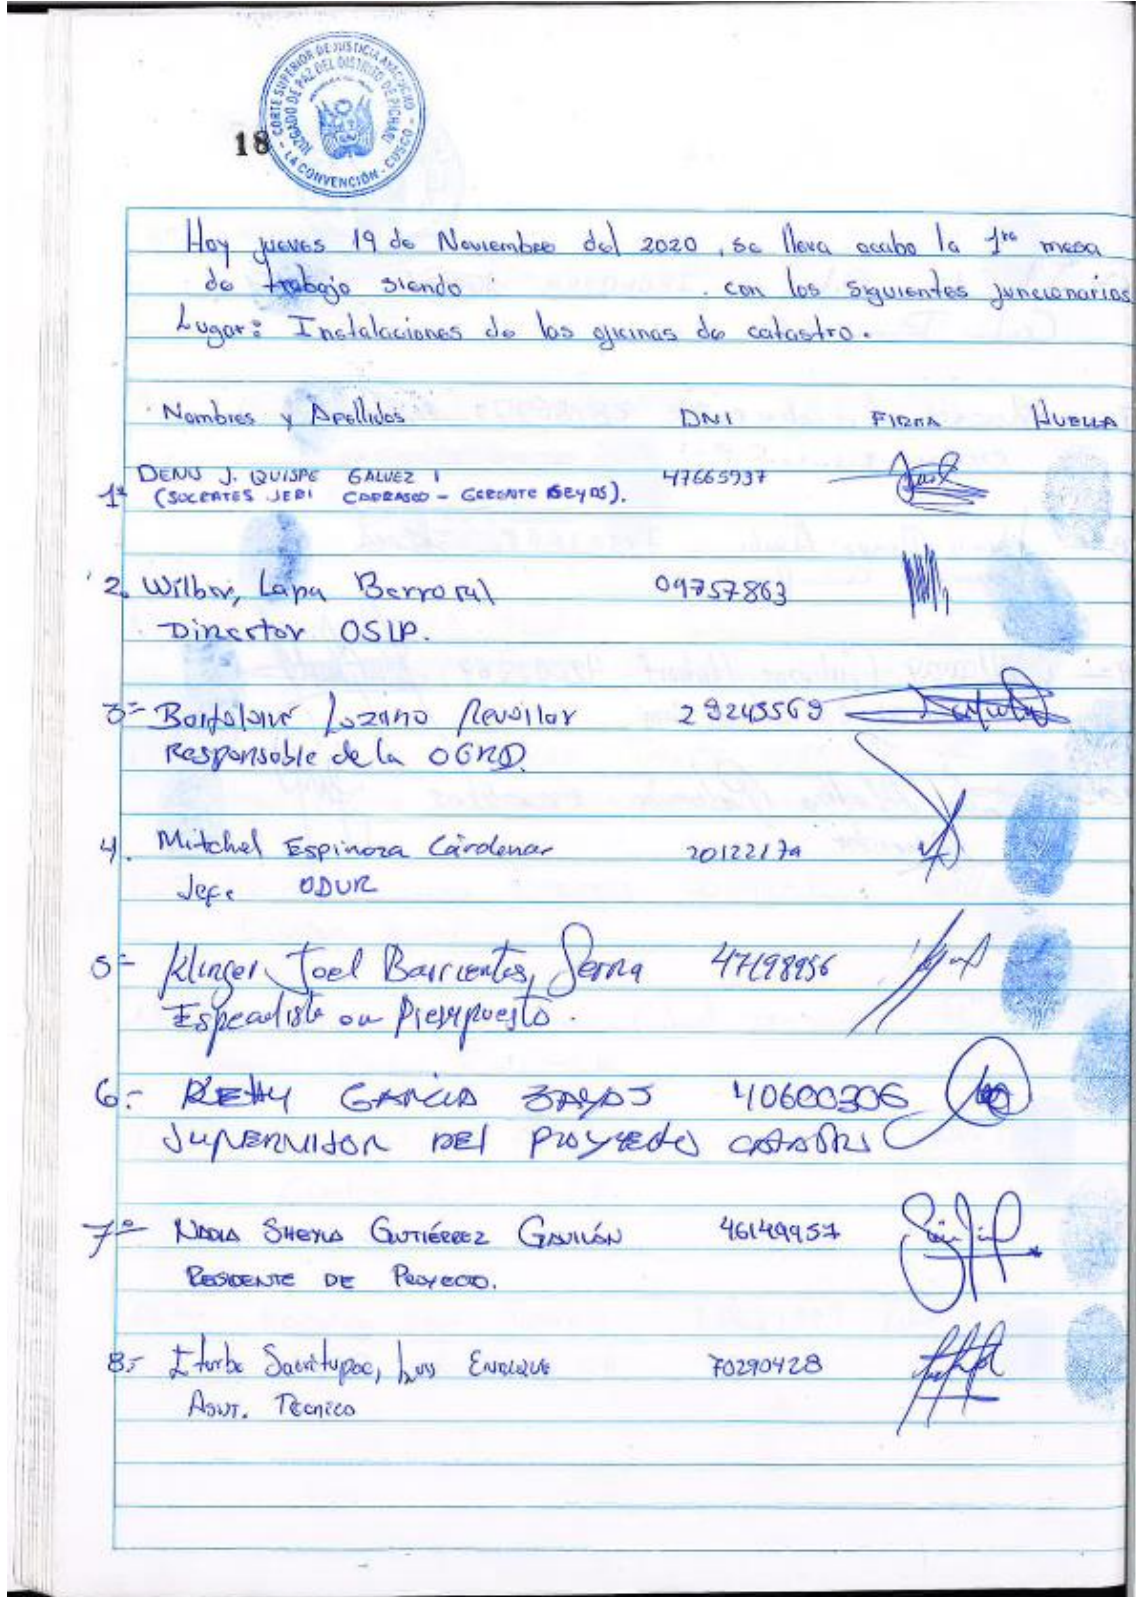 CORTE SUPERIOR DE JUSTICIA AYACUCHO
JUZGADO DE PAZ DEL DISTRITO DE PICHARI
- LA CONVENCIÓN - CUSCO -
18
Hoy jueves 19 de Noviembre del 2020, se lleva acabo la 1ra mesa
de trabajo siendo . con los siguientes funcionarios
Lugar: Instalaciones de las oficinas de catastro.
Nombres y Apellidos DNI FIRMA HUELLA
1º DENIS J. QUISPE GALVEZ 47665937
(SOCRATES JERI CARRASCO - GERENTE GEYDS).
2. Wilber, Lapa Berrocal 09757863
Director OSLP.
3- Lozano 29245569
Responsable de la OGRD
4. Mitchel Espinoza Cárdenas 20122174
Jefe ODUR
5- Klinger Joel Barrientos, Serna 47198956
Especialista en Presupuesto.
6.- KETTY GARCIA ZAYAS 40600306
SUPERVISOR DEL PROYECTO CATASTRO
7º NADIA SHEYLA GUTIÉRREZ GAVILÁN 46149957
RESIDENTE DE PROYECTO.
8.- Iturbe Sacritupac, Luis ENRIQUE 70290428
ASIST. TÉCNICO